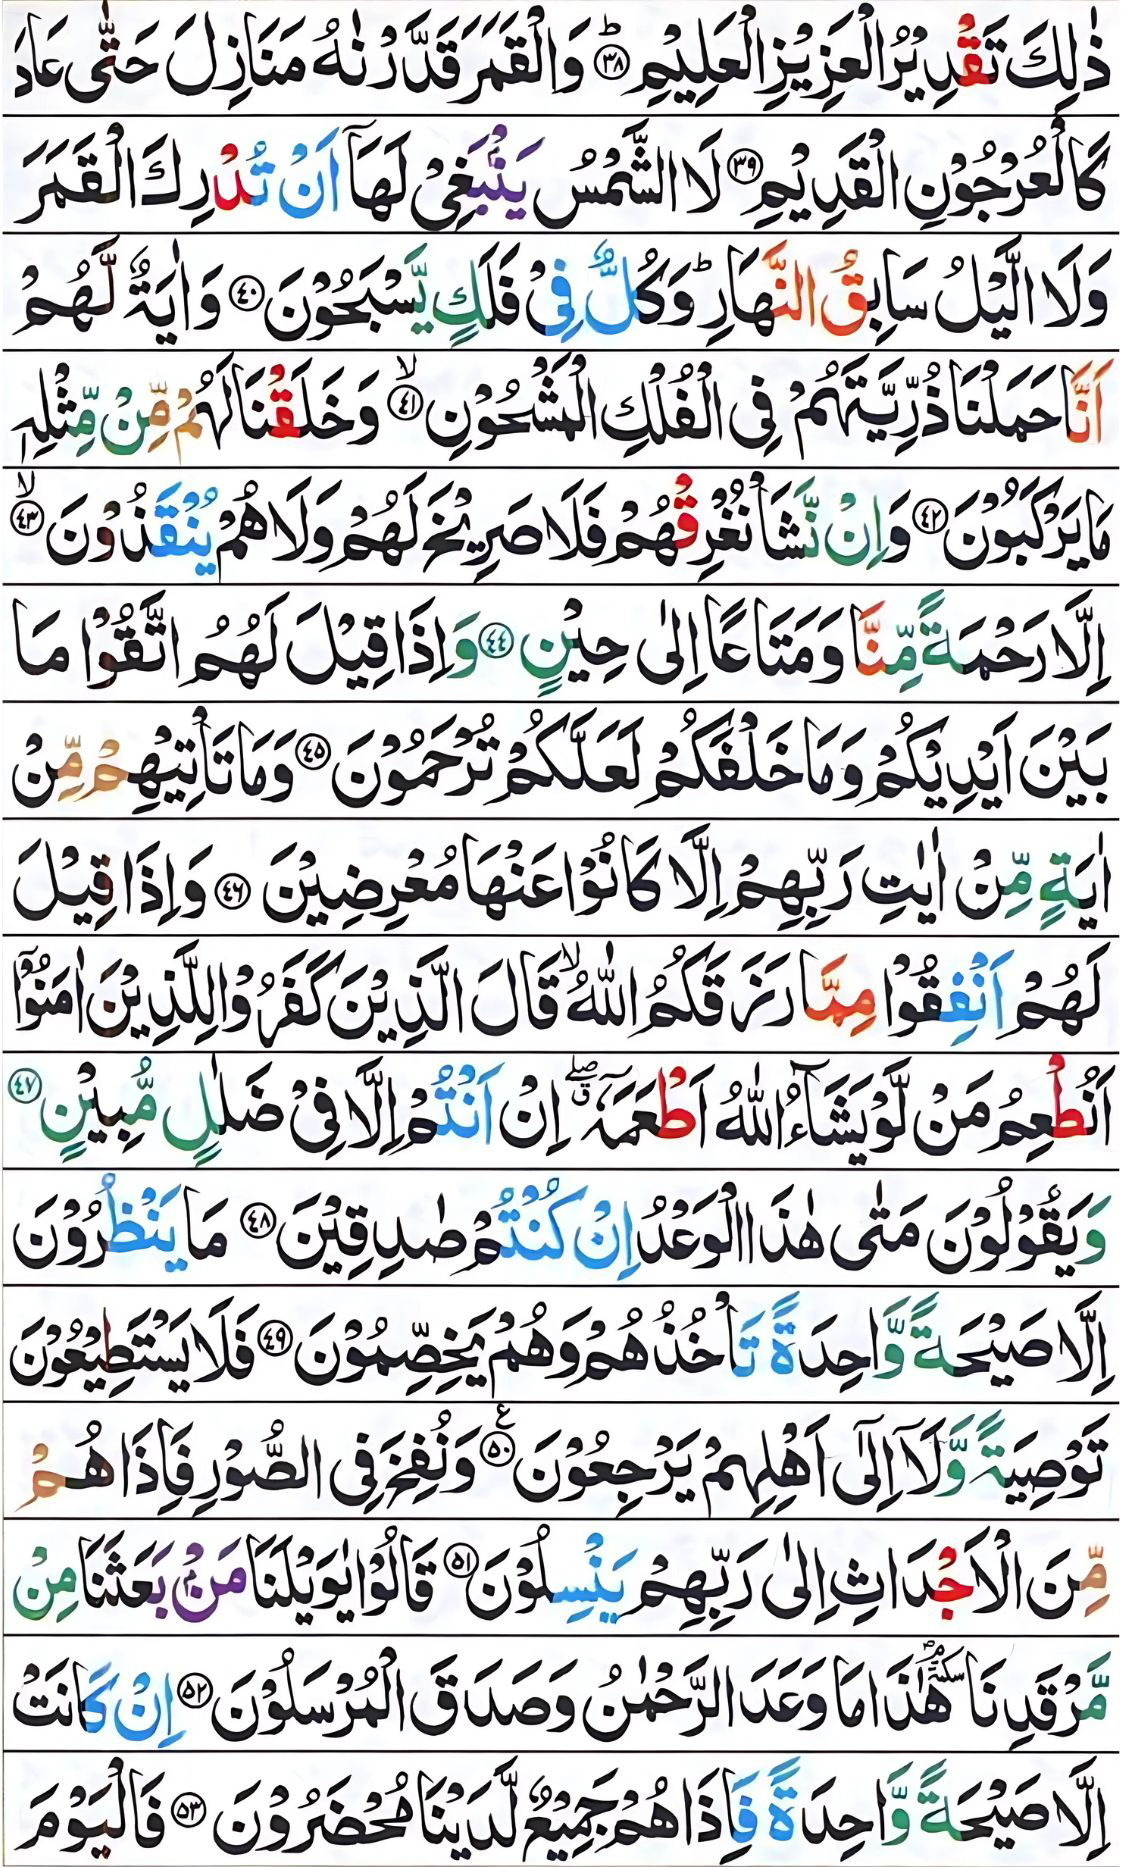 ذٰلِكَ تَقْدِيْرُ الْعَزِيْزِ الْعَلِيْمِ ؕ‏﴿۳۸﴾ وَالْقَمَرَ قَدَّرْنٰهُ مَنَازِلَ حَتّٰى عَادَ
كَالْعُرْجُوْنِ الْقَدِيْمِ ﴿۳۹﴾ لَا الشَّمْسُ يَنْۢبَغِىْ لَهَاۤ اَنْ تُدْرِكَ الْقَمَرَ
وَلَا الَّيْلُ سَابِقُ النَّهَارِ ؕ وَكُلٌّ فِىْ فَلَكٍ يَّسْبَحُوْنَ ﴿۴۰﴾ وَاٰيَةٌ لَّهُمْ
اَنَّا حَمَلْنَا ذُرِّيَّتَهُمْ فِى الْفُلْكِ الْمَشْحُوْنِ ۙ‏﴿۴۱﴾ وَخَلَقْنَا لَهُمْ مِّنْ مِّثْلِهٖ
مَا يَرْكَبُوْنَ ﴿۴۲﴾ وَاِنْ نَّشَاْ نُغْرِقْهُمْ فَلَا صَرِيْخَ لَهُمْ وَلَا هُمْ يُنْقَذُوْنَ ۙ‏﴿۴۳﴾
اِلَّا رَحْمَةً مِّنَّا وَمَتَاعًا اِلٰى حِيْنٍ ﴿۴۴﴾ وَاِذَا قِيْلَ لَهُمُ اتَّقُوْا مَا
بَيْنَ اَيْدِيْكُمْ وَمَا خَلْفَكُمْ لَعَلَّكُمْ تُرْحَمُوْنَ ﴿۴۵﴾ وَمَا تَاْتِيْهِمْ مِّنْ
اٰيَةٍ مِّنْ اٰيٰتِ رَبِّهِمْ اِلَّا كَانُوْا عَنْهَا مُعْرِضِيْنَ ﴿۴۶﴾ وَاِذَا قِيْلَ
لَهُمْ اَنْفِقُوْا مِمَّا رَزَقَكُمُ اللّٰهُ ۙ قَالَ الَّذِيْنَ كَفَرُوْا لِلَّذِيْنَ اٰمَنُوْۤا
اَنُطْعِمُ مَنْ لَّوْ يَشَآءُ اللّٰهُ اَطْعَمَهٗۤ ۖ ق اِنْ اَنْتُمْ اِلَّا فِىْ ضَلٰلٍ مُّبِيْنٍ ﴿۴۷﴾
وَيَقُوْلُوْنَ مَتٰى هٰذَا الْوَعْدُ اِنْ كُنْتُمْ صٰدِقِيْنَ ﴿۴۸﴾ مَا يَنْظُرُوْنَ
اِلَّا صَيْحَةً وَّاحِدَةً تَاْخُذُهُمْ وَهُمْ يَخِصِّمُوْنَ ﴿۴۹﴾ فَلَا يَسْتَطِيْعُوْنَ
تَوْصِيَةً وَّلَاۤ اِلٰٓى اَهْلِهِمْ يَرْجِعُوْنَ ﴿۵۰﴾ ع وَنُفِخَ فِى الصُّوْرِ فَاِذَا هُمْ
مِّنَ الْاَجْدَاثِ اِلٰى رَبِّهِمْ يَنْسِلُوْنَ ﴿۵۱﴾ قَالُوْا يٰوَيْلَنَا مَنْۢ بَعَثَنَا مِنْ
مَّرْقَدِنَا سكتة ۘ هٰذَا مَا وَعَدَ الرَّحْمٰنُ وَصَدَقَ الْمُرْسَلُوْنَ ﴿۵۲﴾ اِنْ كَانَتْ
اِلَّا صَيْحَةً وَّاحِدَةً فَاِذَا هُمْ جَمِيْعٌ لَّدَيْنَا مُحْضَرُوْنَ ﴿۵۳﴾ فَالْيَوْمَ